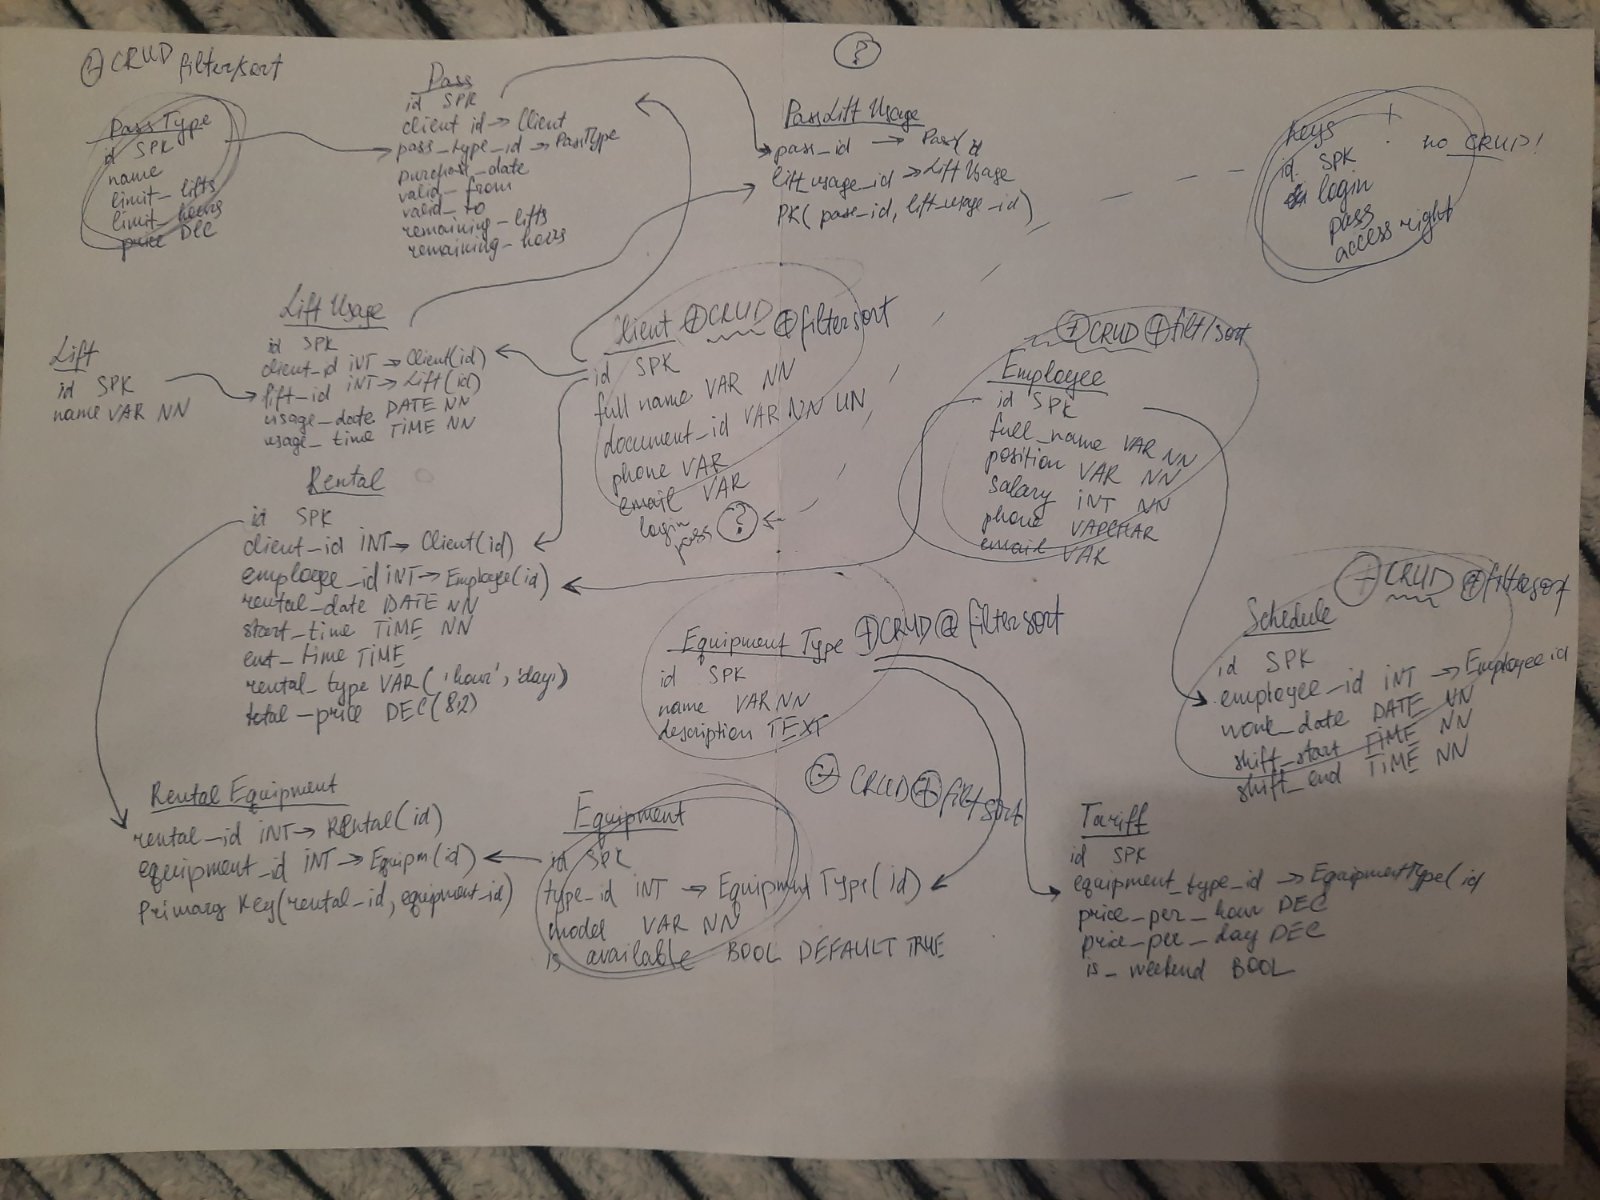 + CRUD filter/sort
Pass Type
id SPK
name
limit_lifts
limit_hours
price DEC
Pass
id SPK
client id → Client
pass_type_id → PassType
valid_from
valid_to
remaining_lifts
remaining_hours
?
PassLift Usage
pass_id → Pass id
lift_usage_id → Lift Usage
PK(pass_id, lift_usage_id)
Keys +
id SPK
login
pass
access right
no CRUD!
Lift
id SPK
name VAR NN
Lift Usage
id SPK
client_id INT → Client(id)
lift_id INT → Lift(id)
usage_date DATE NN
usage_time TIME NN
Client + CRUD + filtersort
id SPK
full name VAR NN
document_id VAR NN UN
phone VAR
email VAR
login
pass ?
+ CRUD + filt/sort
Employee
id SPK
full_name VAR NN
position VAR NN
salary INT NN
phone VARCHAR
email VAR
Rental
id SPK
client_id INT → Client(id)
employee_id INT → Employee(id)
rental_date DATE NN
start_time TIME NN
ent_time TIME
rental_type VAR('hour', 'day')
total_price DEC(8,2)
Equipment Type + CRUD + filtersort
id SPK
name VAR NN
description TEXT
+ CRUD + filtersort
Schedule
id SPK
employee_id INT → Employee id
work_date DATE NN
shift_start TIME NN
shift_end TIME NN
Rental Equipment
rental_id INT → Rental(id)
equipment_id INT → Equipm(id)
Primary Key(rental_id, equipment_id)
CRUD + filtsort
Equipment
id SPK
type_id INT → Equipment Type(id)
model VAR NN
is available BOOL DEFAULT TRUE
Tariff
id SPK
equipment_type_id → EquipmentType(id
price_per_hour DEC
price_per_day DEC
is_weekend BOOL